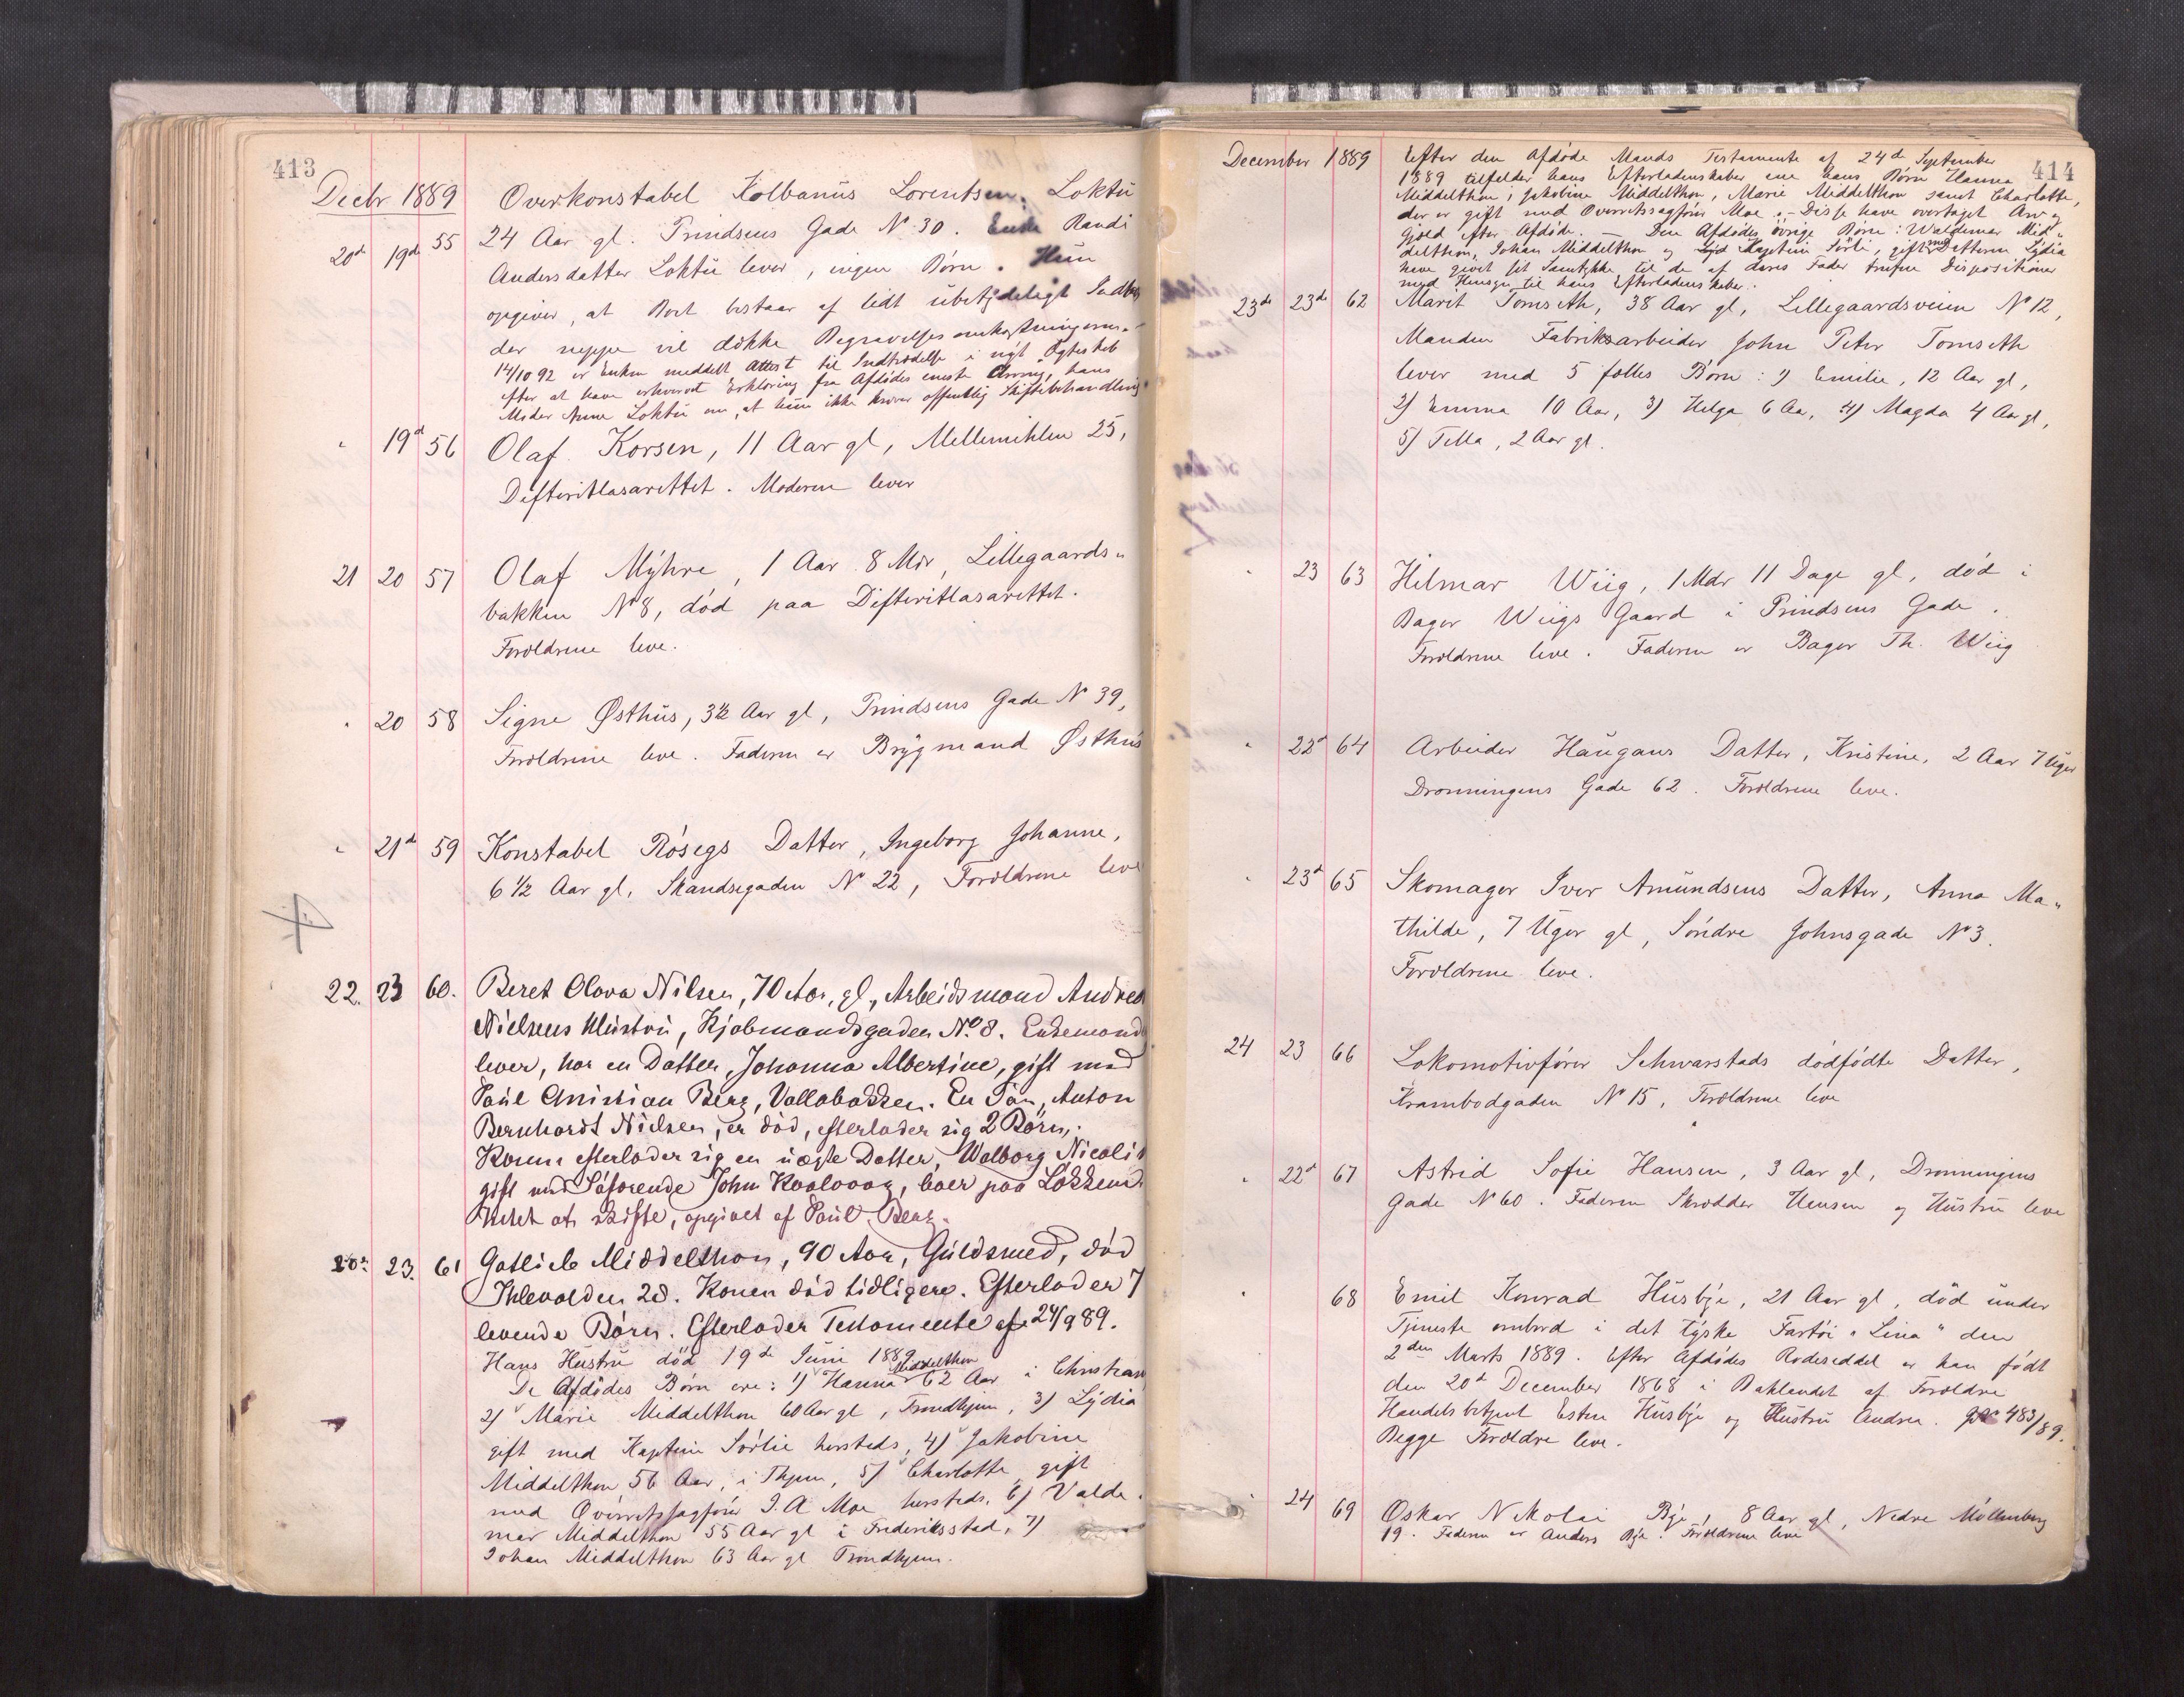 413
Decbr 1889
20de 19de 55 Overkonstabel Kolbanus Lorentsen Loktu
24 Aar gl. Prindsens Gade No 30. Enke Randi
Andersdatter Loktu lever, ingen Børn. Hun
opgiver, at Boet bestaar af lidt ubetydeligt Indbo,
der neppe vil dække Begravelsesomkostningerne.-
14/10 92 er Enken meddelt Attest til Indtrædelse i nyt Ægteskab
efter at have erhvervet Erklæring fra Afdødes eneste Arving, hans
Moder Anne Loktu om, at hun ikke kræver offentlig Skiftebehandling
" 19d 56 Olaf Korsen, 11 Aar gl, Mellemihlen 25,
Difteritlasarettet. Moderen lever
21 20 57 Olaf Myhre, 1 Aar 8 Mdr, Lillegaards„
bakken No 8, død paa Difteritlasarettet.
Forældrene leve.
" 20 58 Signe Østhus, 3½ Aar gl, Prindsens Gade No 39,
Forældrene leve. Faderen er Brygmand Østhus
" 21d 59 Konstabel Røsegs Datter, Ingeborg Johanne,
6 1/2 Aar gl, Skandsegaden No 22, Forældrene leve
22. 23 60. Beret Olava Nilsen, 70 Aar, gl, Arbeidsmand Andreas
Nielsens Hustru, Kjøbmandsgaden No. 8. Enkemand
lever, har en Datter, Johanna Albertine, gift med
Paul Christian Berg, Vollabakken. En Søn, Anton
Bernhardt Nielsen, er død, efterlader sig 2 Børn,
Konen efterlader sig en uægte Datter, Walborg Nicoli
gift med Søfarende John, boer paa Løkken.
Intet at skifte, opgivet af Paul Berg.
20de 23. 61 Gotlieb Middelthon, 90 Aar, Guldsmed, død
Ihlevolden 28. Konen død tidligere. Efterlader 7
levende Børn. Efterlader Testamente af 24/9 89.
Hans Hustru død 19de Juni 1889
De Afdødes Børn ere: 1) Hanna Middelthon 62 Aar i Christian
2) Marie Middelthon 60 Aar gl, Trondhjem, 3) Lydia
gift med Kaptein Sørlie hersteds, 4) Jakobine
Middelthon 56 Aar, i Thjem, 5) Charlotte gift
med Overretssagfører I. A. Moe hersteds, 6) Valde-
mar Middelthon 55 Aar gl i Frederiksstad, 7)
Johan Middelthon 63 Aar gl Trondhjem.
414
December 1889
Efter den afdøde Mands Testamente af 24de September
1889 tilfalder hans Efterladenskaber ene hans Børn Hanna
Middelthon, Jakobine Middelthon, Marie Middelthon samt Charlotte,
der er gift med Overretssagfører Moe.- Disse have overtaget Arv og
Gjæld efter Afdøde. — Den Afdødes øvrige Børn: Waldemar Mid„
delthon, Johan Middelthon og Kaptein Sørli, gift med Datteren Lydia
have givet sit Samtykke til de af deres Fader trufne Dispositioner
med Hensyn til hans Efterladenskaber.
23de 23de 62 Marit Tomseth, 38 Aar gl, Lillegaardsveien No 12,
Manden Fabriksarbeider John Peter Tomseth
lever med 5 fælles Børn: 1) Emilie, 12 Aar gl,
2) Emma 10 Aar, 3) Helga 6 Aar, 4) Magda 4 Aar gl,
5) Tella, 2 Aar gl.
" 23 63 Hilmar Wiig, 1 Mdr 11 Dage gl, død i
Bager Wiigs Gaard i Prindsens Gade.
Forældrene leve. Faderen er Bager Th. Wiig
" 22d 64 Arbeider Haugans Datter, Kristine, 2 Aar 7 Uger
Dronningens Gade 62. Forældrene leve.
" 23d 65 Skomager Iver Amundsens Datter, Anna Ma„
thilde, 7 Uger gl, Søndre Johnsgade No 3.
Forældrene leve.
24 23 66 Lokomotivfører Schwarstads dødfødte Datter,
Krambodgaden No 15, Forældrene leve
" 22d 67 Astrid Sofie Hansen, 3 Aar gl, Dronningens
Gade No 60. Faderen Skrædder Hansen og Hustru leve
" 68 Emil Konrad Husbye, 21 Aar gl, død under
Tjeneste ombord i det tyske Fartøi "Lina" den
2den Marts 1889. Efter Afdødes Rodeseddel er han født
den 20d December 1868 i Baklandet af Forældre
Handelsbetjent Esten Husbye og Hustru Andrea. 483/89.
Begge Forældre leve.
" 24 69 Oskar Nikolai Bye, 8 Aar gl, Nedre Møllenberg
19. Faderen er Anders Bye. Forældrene leve